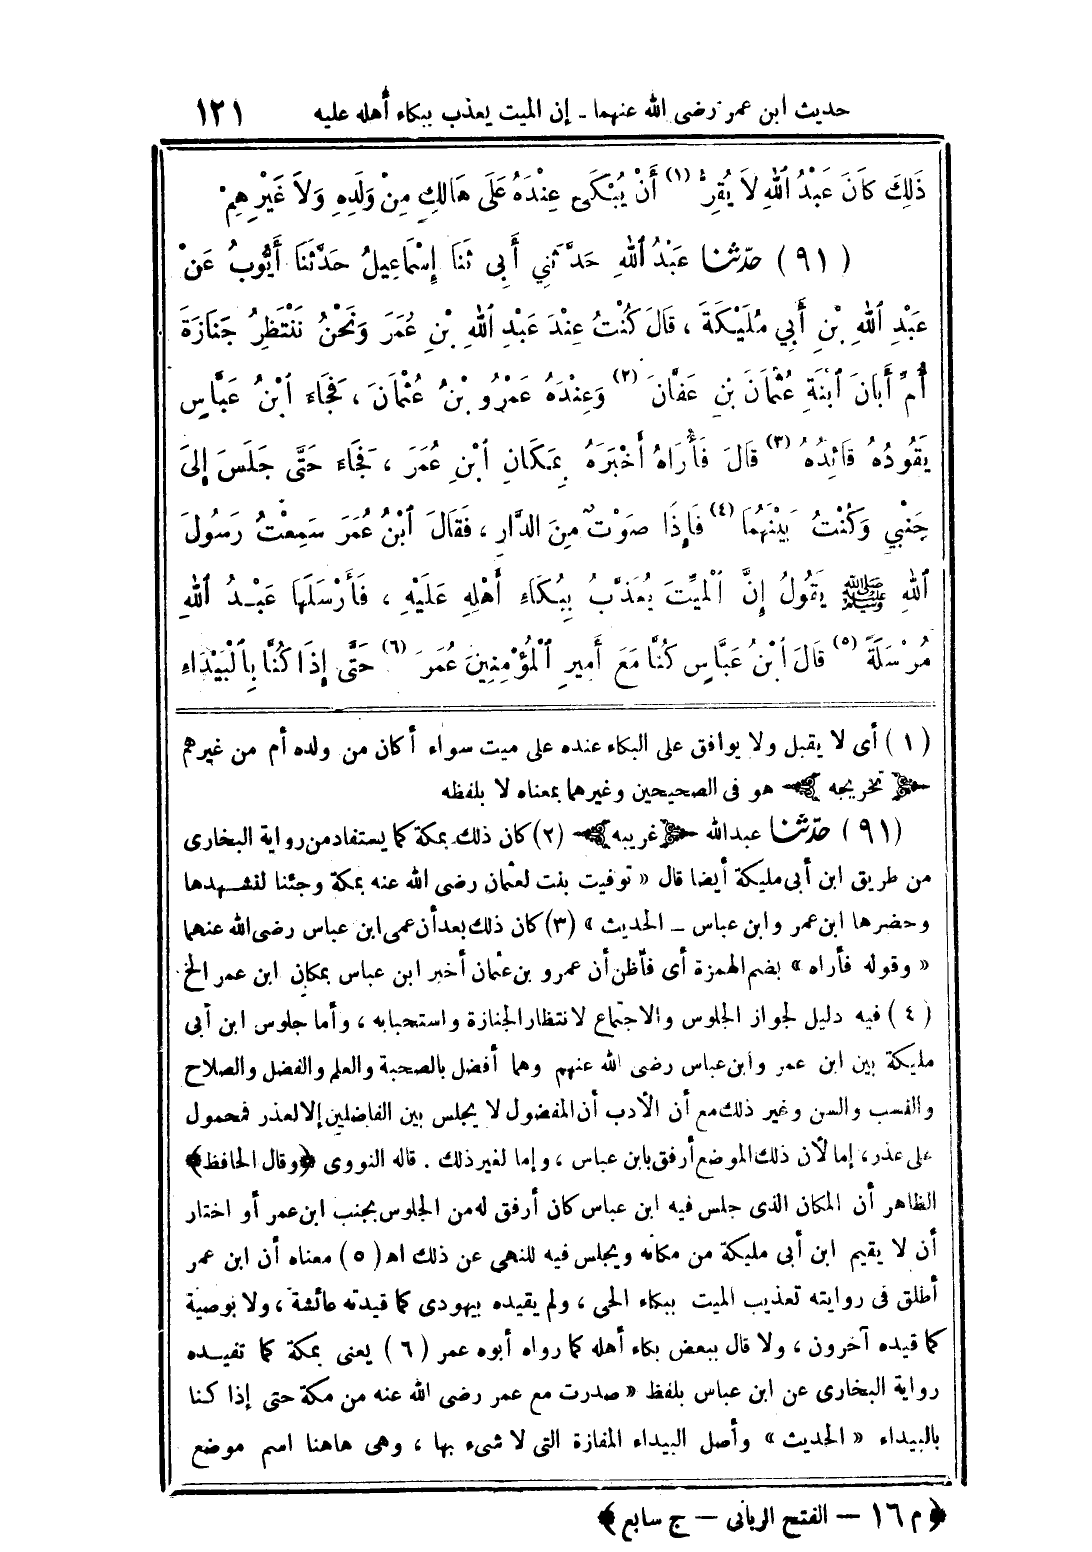 حديث ابن عمر رضى الله عنهما - إن الميت يعذب ببكاء أهله عليه ١٢١
ذَلِكَ كَانَ عَبْدُ اللهِ لاَ يُقِرُّ (١) أَنْ يُبْكَى عِنْدَهُ عَلَى هَالِكٍ مِنْ وَلَدِهِ وَلاَ غَيْرِهِمْ
(٩١) حَدَّثَنَا عَبْدُ اللهِ حَدَّثَنِي أَبِى ثَنَا إِسْمَاعِيلُ حَدَّثَنَا أَيُّوبُ عَنْ
عَبْدِ اللهِ بْنِ أَبِي مُلَيْكَةَ ، قَالَ كُنْتُ عِنْدَ عَبْدِ اللهِ بْنِ عُمَرَ وَنَحْنُ نَنْتَظِرُ جَنَازَةَ
أُمِّ أَبَانَ ابْنَةِ عُثْمَانَ بْنِ عَفَّانَ (٢) وَعِنْدَهُ عَمْرُو بْنُ عُثْمَانَ ، فَجَاءَ ابْنُ عَبَّاسٍ
يَقُودُهُ قَائِدُهُ (٣) قَالَ فَأُرَاهُ أَخْبَرَهُ بِمَكَانِ ابْنِ عُمَرَ ، فَجَاءَ حَتَّى جَلَسَ إِلَى
جَنْبِي وَكُنْتُ بَيْنَهُمَا (٤) فَإِذَا صَوْتٌ مِنَ الدَّارِ ، فَقَالَ ابْنُ عُمَرَ سَمِعْتُ رَسُولَ
اللهِ ﷺ يَقُولُ إِنَّ الْمَيِّتَ يُعَذَّبُ بِبُكَاءِ أَهْلِهِ عَلَيْهِ ، فَأَرْسَلَهَا عَبْدُ اللهِ
مُرْسَلَةً (٥) قَالَ ابْنُ عَبَّاسٍ كُنَّا مَعَ أَمِيرِ الْمُؤْمِنِينَ عُمَرَ (٦) حَتَّى إِذَا كُنَّا بِالْبَيْدَاءِ
(١) أى لا يقبل ولا يوافق على البكاء عنده على ميت سواء أكان من ولده أم من غيرهم
﴿تخريجه﴾ هو فى الصحيحين وغيرهما بمعناه لا بلفظه
(٩١) حدثنا عبدالله ﴿غريبه﴾ (٢) كان ذلك بمكة كما يستفاد من رواية البخارى
من طريق ابن أبى مليكة أيضا قال « توفيت بنت لعثمان رضى الله عنه بمكة وجئنا لنشهدها
وحضرها ابن عمر وابن عباس ـ الحديث » (٣) كان ذلك بعد أن عمى ابن عباس رضى الله عنهما
« وقوله فأراه » بضم الهمزة أى فأظن أن عمرو بن عثمان أخبر ابن عباس بمكان ابن عمر الخ
(٤) فيه دليل لجواز الجلوس والاجتماع لانتظار الجنازة واستحبابه ، وأما جلوس ابن أبى
مليكة بين ابن عمر وابن عباس رضى الله عنهم وهما أفضل بالصحبة والعلم والفضل والصلاح
والنسب والسن وغير ذلك مع أن الأدب أن المفضول لا يجلس بين الفاضلين إلا لعذر فمحمول
على عذر، إما لأن ذلك الموضع أرفق بابن عباس ، وإما لغير ذلك . قاله النووى ﴿وقال الحافظ﴾
الظاهر أن المكان الذى جلس فيه ابن عباس كان أرفق له من الجلوس بجنب ابن عمر أو اختار
أن لا يقيم ابن أبى مليكة من مكانه ويجلس فيه للنهى عن ذلك اهـ (٥) معناه أن ابن عمر
أطلق فى روايته تعذيب الميت ببكاء الحى ، ولم يقيده بيهودى كما قيدته عائشة ، ولا بوصية
كما قيده آخرون ، ولا قال ببعض بكاء أهله كما رواه أبوه عمر (٦) يعنى بمكة كما تفيده
رواية البخارى عن ابن عباس بلفظ « صدرت مع عمر رضى الله عنه من مكة حتى إذا كنا
بالبيداء « الحديث » وأصل البيداء المفازة التى لا شىء بها ، وهى هاهنا اسم موضع
﴿م ١٦ — الفتح الربانى — ج سابع﴾